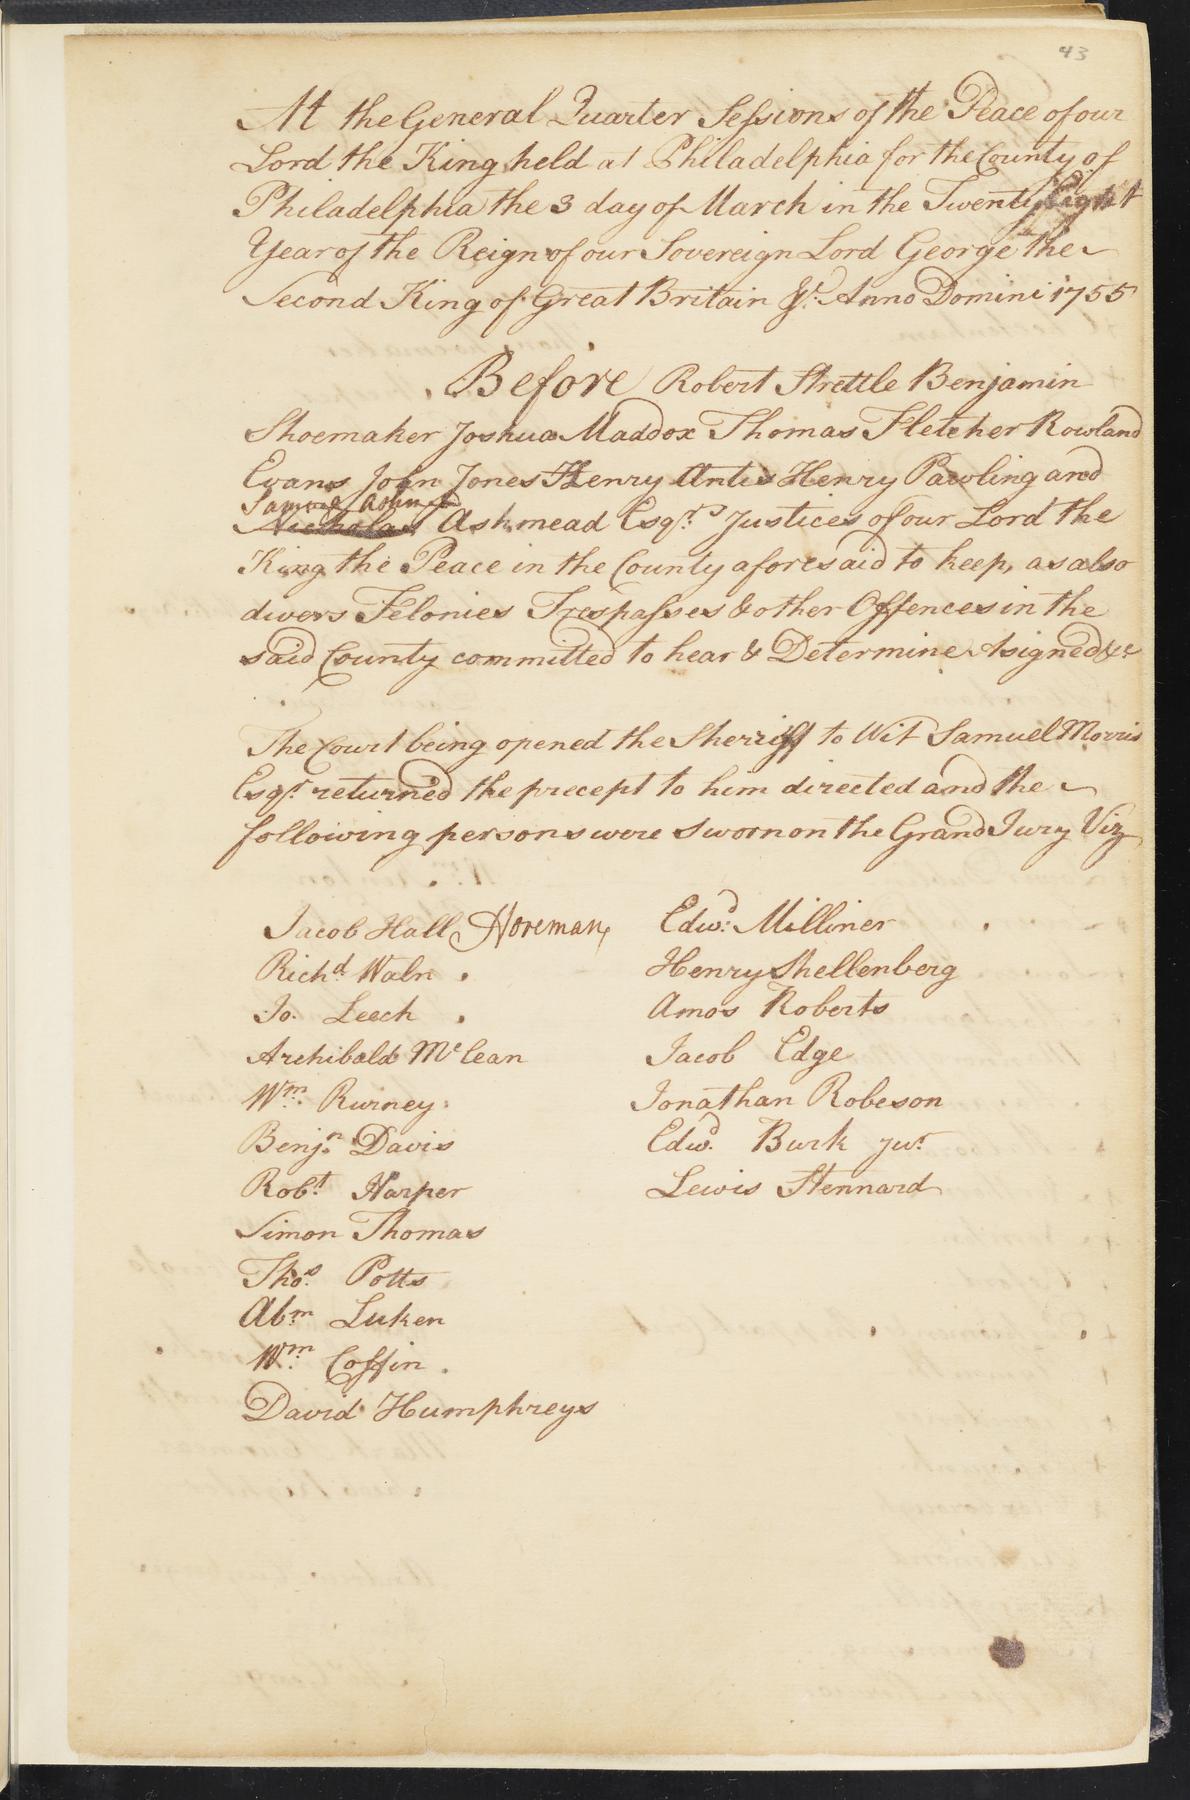 43
At the General Quarter Sessions of the Peace of our
Lord the King held at Philadelphia for the County of
Philadelphia the 3 day of March in the Twenty Eight
Year of the Reign of our Sovereign Lord George the
Second King of Great Britain &c. Anno Domini 1755
Before Robert Strettle Benjamin
Shoemaker Joshua Maddox Thomas Fletcher Rowland
Evans John Jones Henry Antes Henry Pawling and
Samuel Ashmead
Nicholas Ashmead Esqrs. Justices of our Lord the
King the Peace in the County aforesaid to keep, as also
divers Felonies Trespasses & other Offences in the
said County committed to hear & Determine Asigned &c
The Court being opened the Sherriff to Wit Samuel Morris
Esqr. returned the precept to him directed and the
following persons were sworn on the Grand Jury Viz
Jacob Hall Foreman
Richd. Waln
Jo. Leech
Archibald Mc lean
Wm. Rurney
Benjn. Davis
Robt. Harper
Simon Thomas
Thos. Potts
Abm. Luken
Wm. Coffin
David Humphreys
Edwd. Milliner
Henry Shellenberg
Amos Roberts
Jacob Edge
Jonathan Robeson
Edwd. Burk jur.
Lewis Stennard